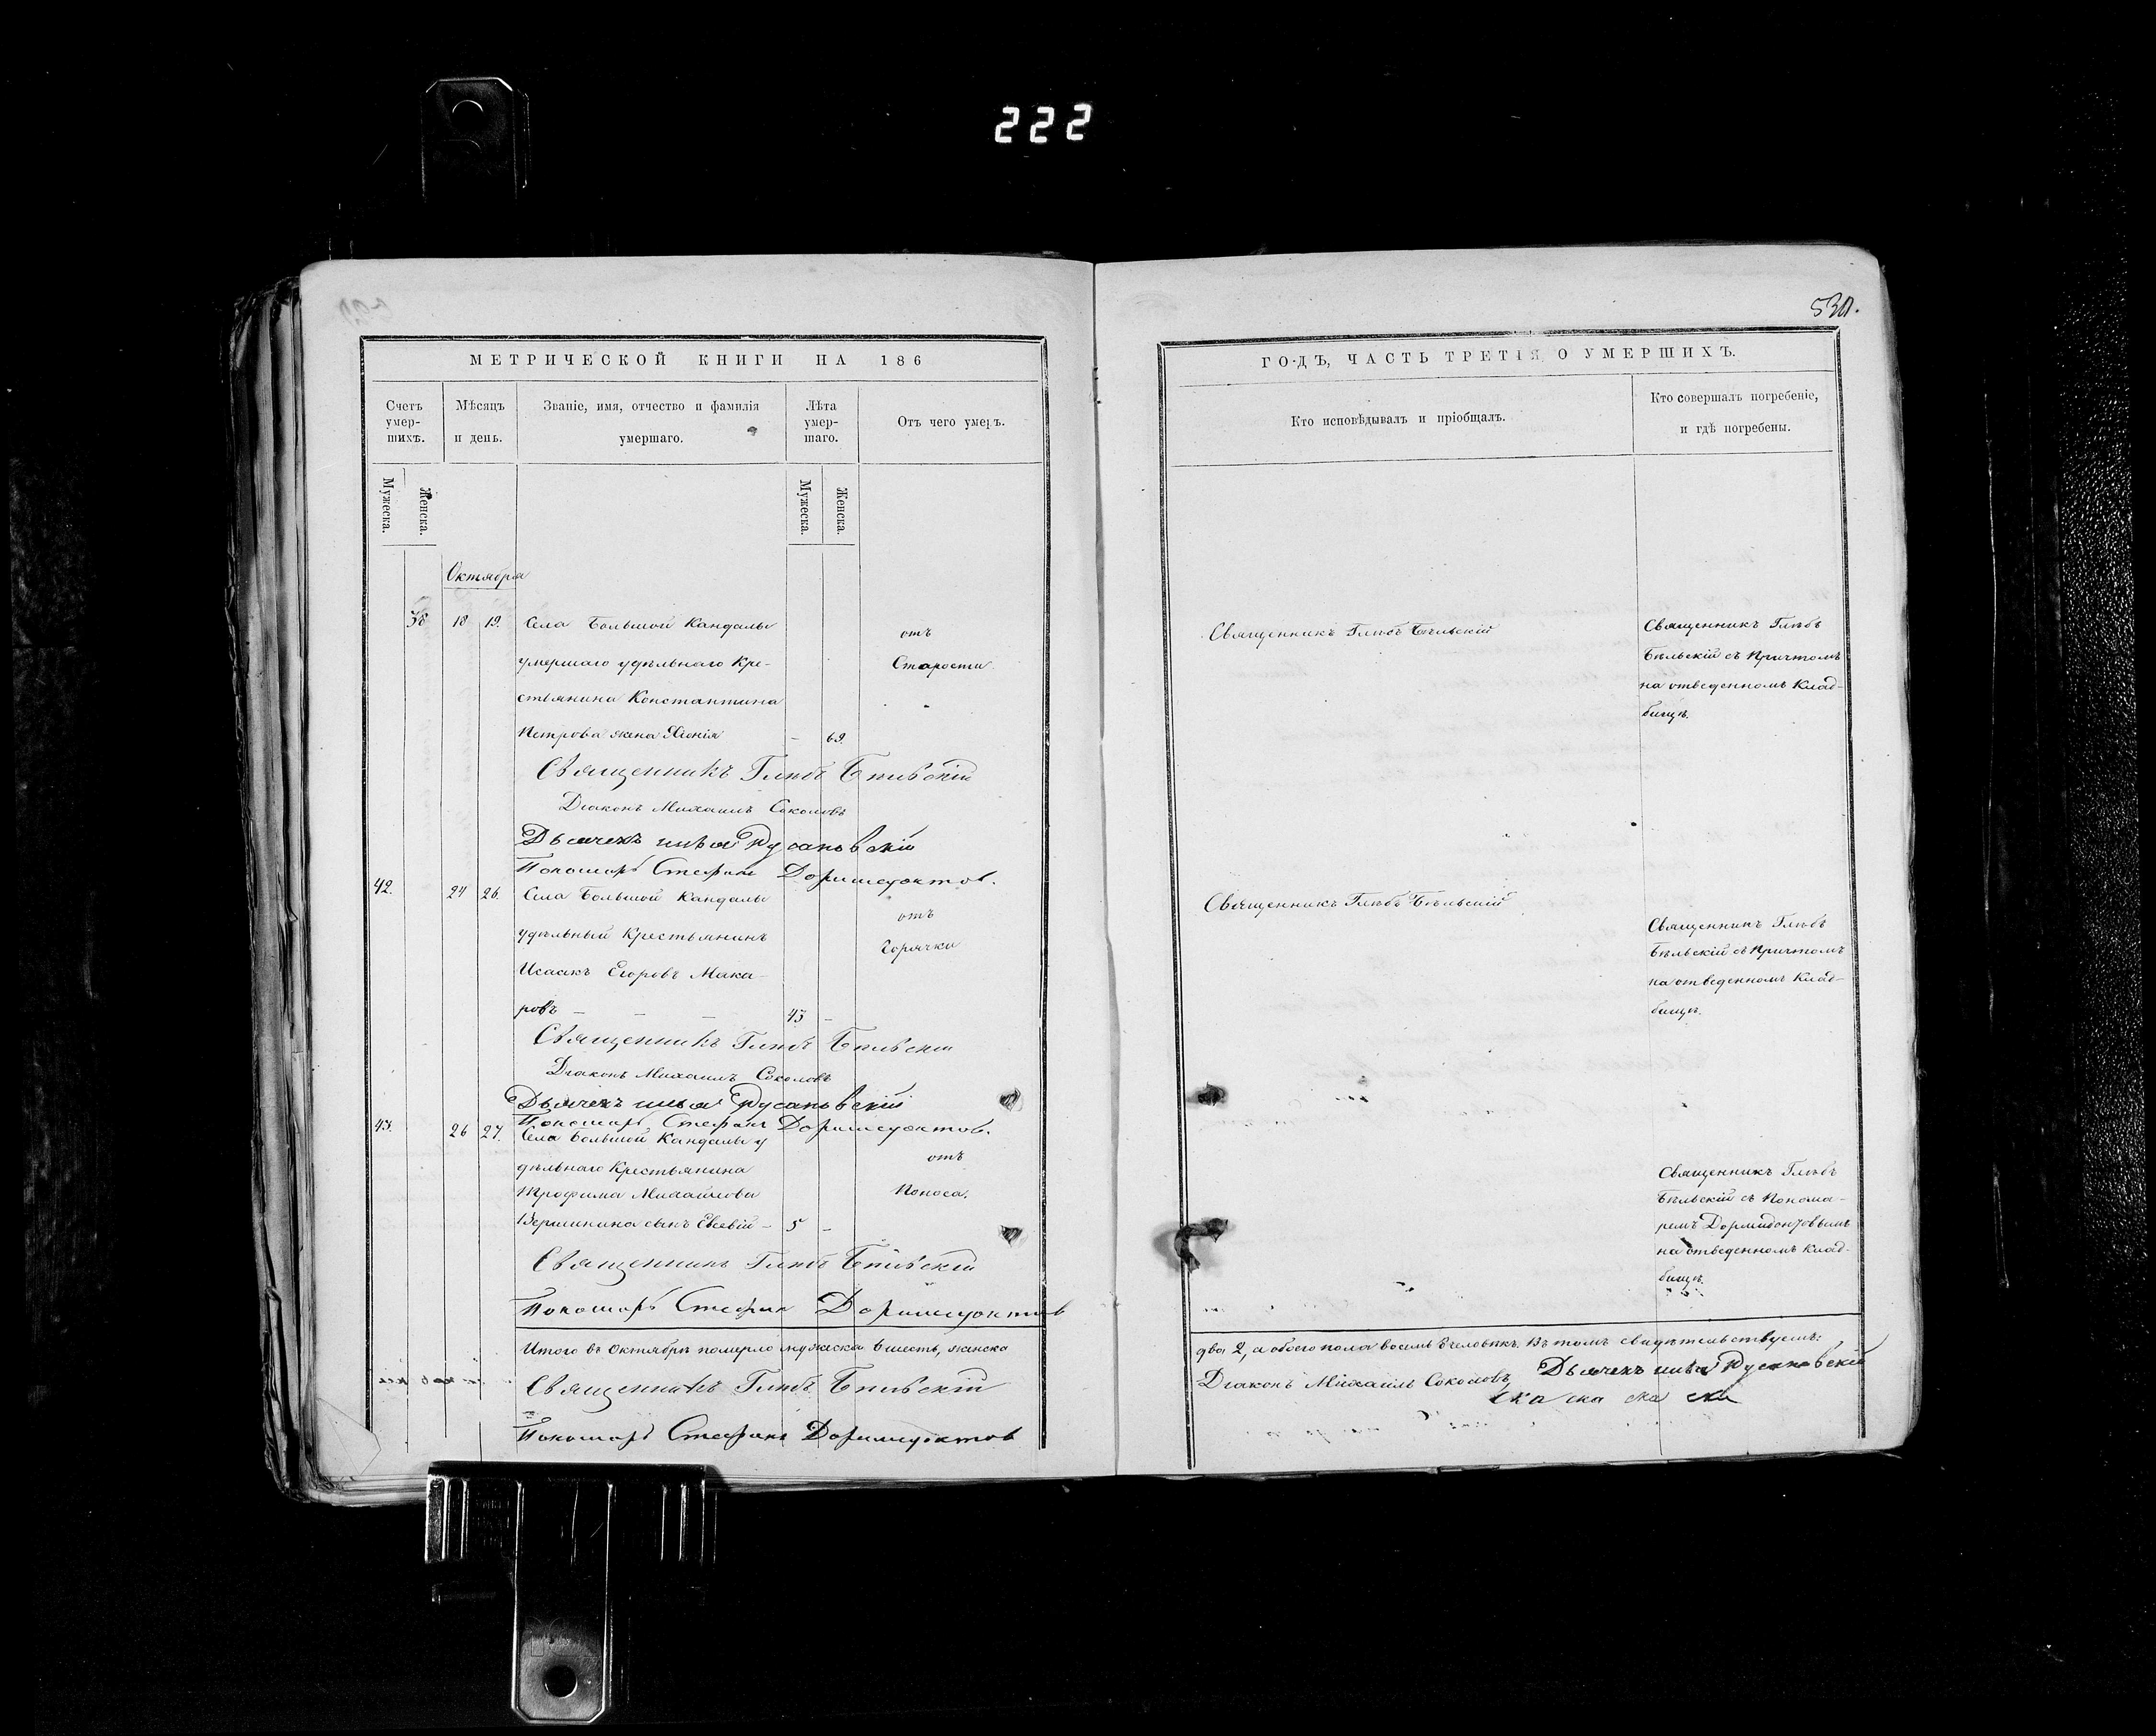 222
530.
МЕТРИЧЕСКОЙ КНИГИ НА 186
Счетъ умер-шихъ.
Мѣсяцъ и день.
Званіе, имя, отчество и фамилія умершаго.
Лѣта умер-шаго.
Отъ чего умеръ.
Мужеска.
Женска.
Мужеска.
Женска.
Октября
38 18 19. Села Большой Кандалы
умершаго удѣльнаго Кре-
стьянина Константина
Петрова жена - 69.
отъ
Старости
Священникъ Глѣбъ Бѣльскій
Діаконъ Михаилъ Соколовъ
Дьячекъ Илья Русановскій
Пономарь Стефанъ Доримедонтов.
42. 24 26. Села Большой Кандалы
удѣльный Крестьянинъ
Исаакъ Егоровъ Мака-
ровъ — — — 43 —
отъ
Горячки
Священникъ Глѣбъ Бѣльскій
Діаконъ Михаилъ Соколовъ
Дьячекъ Илья Русановскій
Пономарь Стефанъ Доримедонтов.
43. 26 27. Села Большой Кандалы у
дѣльнаго Крестьянина
Трофима Михайлова
Вершинина сынъ Евсевій - 5 -
отъ
Поноса.
Священникъ Глѣбъ Бѣльскій
Пономарь Стефанъ Доримедонтов
Итого въ Октябрѣ померло мужеска 6 шесть, женска
Священникъ Глѣбъ Бѣльскій
Пономарь Стефанъ Доримедонтов
ГОДЪ, ЧАСТЬ ТРЕТІЯ, О УМЕРШИХЪ.
Кто исповѣдывалъ и пріобщалъ.
Кто совершалъ погребеніе,
и гдѣ погребены.
Священникъ Глѣбъ Бѣльскій
Священникъ Глѣбъ
Бѣльскій съ Причтомъ
на отведенномъ Клад-
бищѣ.
Священникъ Глѣбъ Бѣльскій
Священникъ Глѣбъ
Бѣльскій съ Причтомъ
на отведенномъ Клад-
бищѣ.
Священникъ Глѣбъ
Бѣльскій съ Понома-
ремъ Дормидонтовымъ
на отведенномъ клад-
бищѣ.
два 2, а обоего пола восемь 8 человѣкъ. Въ томъ свидѣтельствуемъ:
Діаконъ Михаилъ Соколовъ Дьячекъ Илья Русановскій